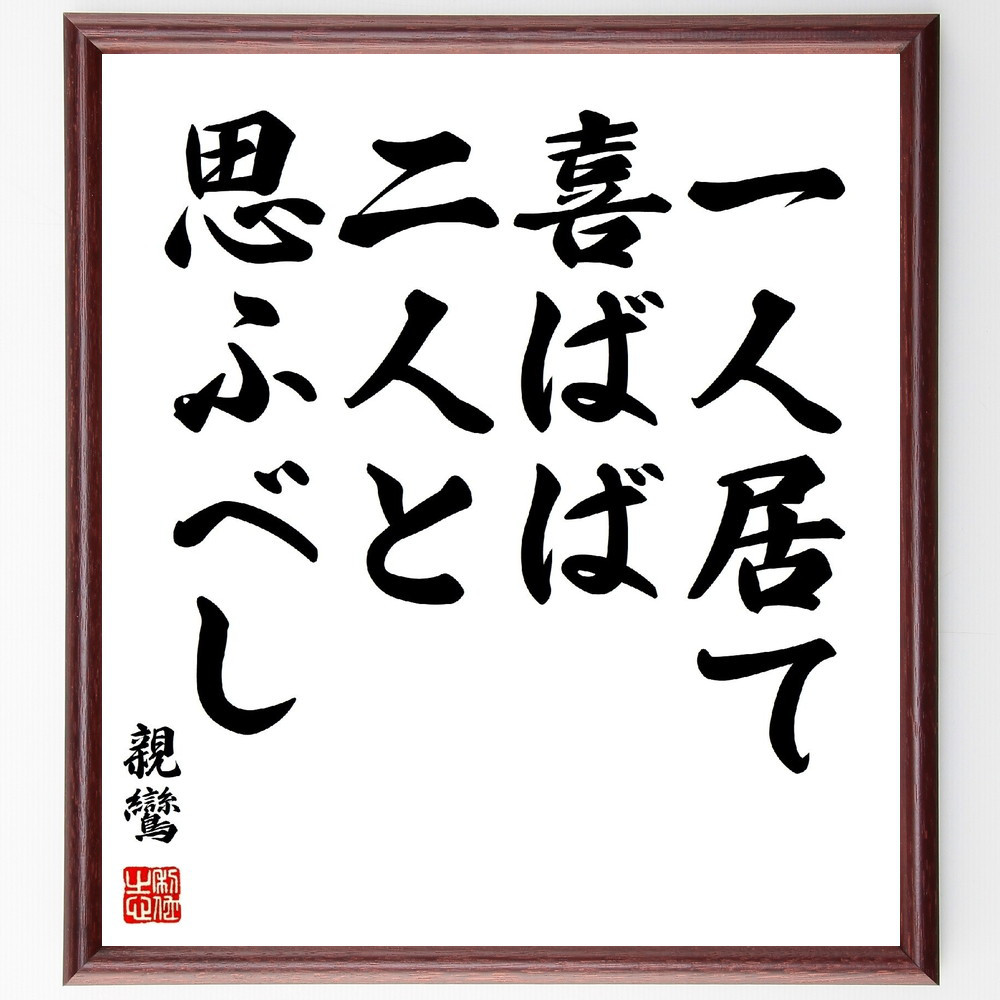 一人居て
喜ばば
二人と
思ふべし
親鸞